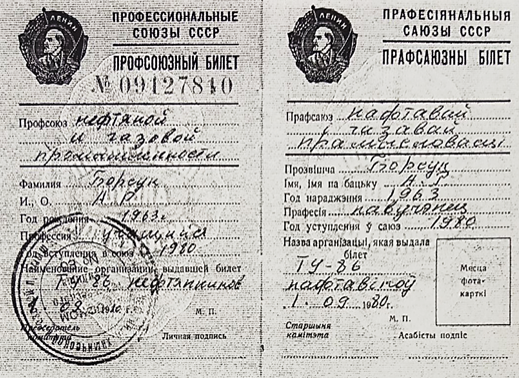 ЛЕНИН
ПРОФЕССИОНАЛЬНЫЕ
СОЮЗЫ СССР
ПРОФСОЮЗНЫЙ БИЛЕТ
№ 09127840
Профсоюз нефтяной
и газовой
промышленности
Фамилия Борсук
И., О. А. Р.
Год рождения 1963 г.
Профессия учащийся
Год вступления в союз 1980.
Наименование организации, выдавшей билет
ТУ-86 нефтяников
М. П.
Председатель
комитета
Личная подпись
ЛЕНИН
ПРАФЕСІЯНАЛЬНЫЯ
САЮЗЫ СССР
ПРАФСАЮЗНЫ БІЛЕТ
Прафсаюз нафтавай
і газавай
прамысловасці
Прозвішча Борсук
Імя, імя на бацьку А.
Год нараджэння 1963
Прафесія навучэнец
Год уступлення ў саюз 1980
Назва арганізацыі, якая выдала
білет
ТУ-86
нафтавікоў
1.09.1980.
Месца
фота-
карткі
М. П.
Старшыня
камітэта
Асабісты подпіс
3